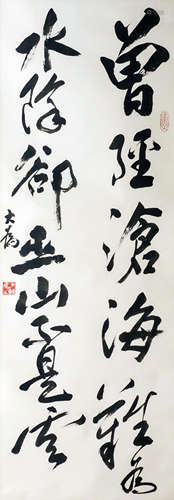 曾經滄海難為
水除卻巫山不是雲
大為